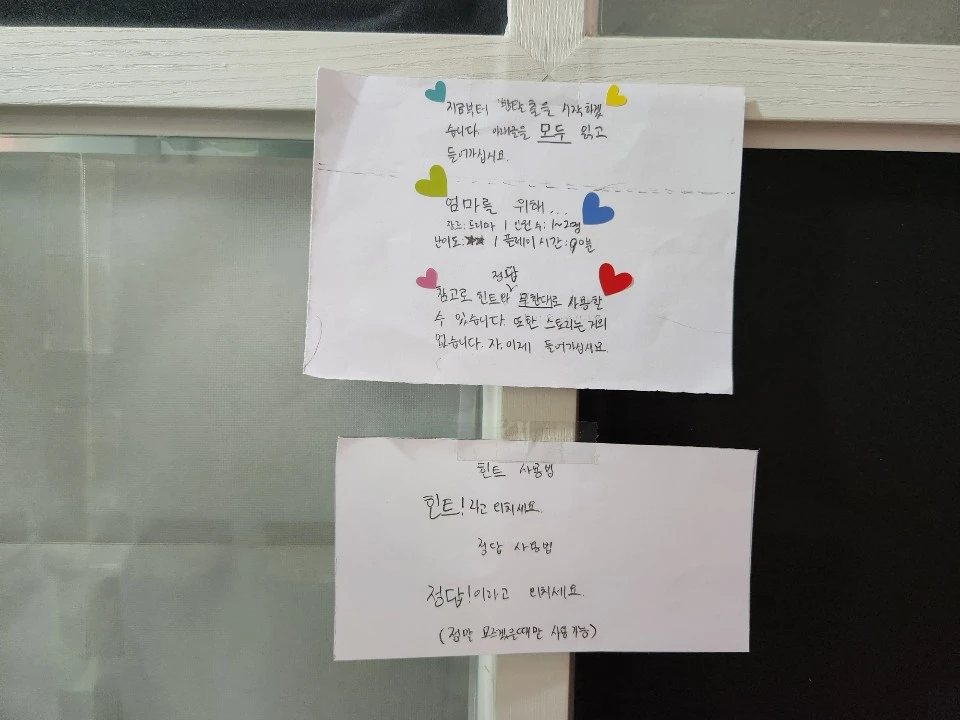 지금부터 방탈출을 시작하겠
습니다. 아래글을 모두 읽고
들어가십시요.
엄마를 위해...
장르:드라마 | 인원수:1~2명
난이도:★★ | 플레이 시간:90분
정답
참고로 힌트와 무한대로 사용할
수 있습니다. 또한 스토리는 거의
없습니다. 자,이제 들어가십시요.
힌트 사용법
힌트!라고 외치세요.
정답 사용법
정답!이라고 외치세요.
(정말 모르겠을때만 사용 가능)